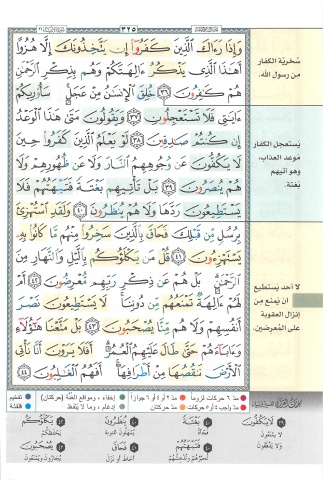 ٣٢٥
وَإِذَا رَءَاكَ ٱلَّذِينَ كَفَرُوٓا۟ إِن يَتَّخِذُونَكَ إِلَّا هُزُوًا
أَهَٰذَا ٱلَّذِى يَذْكُرُ ءَالِهَتَكُمْ وَهُم بِذِكْرِ ٱلرَّحْمَٰنِ
هُمْ كَٰفِرُونَ ٣٦ خُلِقَ ٱلْإِنسَٰنُ مِنْ عَجَلٍ سَأُو۟رِيكُمْ
ءَايَٰتِى فَلَا تَسْتَعْجِلُونِ ٣٧ وَيَقُولُونَ مَتَىٰ هَٰذَا ٱلْوَعْدُ
إِن كُنتُمْ صَٰدِقِينَ ٣٨ لَوْ يَعْلَمُ ٱلَّذِينَ كَفَرُوا۟ حِينَ
لَا يَكُفُّونَ عَن وُجُوهِهِمُ ٱلنَّارَ وَلَا عَن ظُهُورِهِمْ وَلَا
هُمْ يُنصَرُونَ ٣٩ بَلْ تَأْتِيهِم بَغْتَةً فَتَبْهَتُهُمْ فَلَا
يَسْتَطِيعُونَ رَدَّهَا وَلَا هُمْ يُنظَرُونَ ٤٠ وَلَقَدِ ٱسْتُهْزِئَ
بِرُسُلٍ مِّن قَبْلِكَ فَحَاقَ بِٱلَّذِينَ سَخِرُوا۟ مِنْهُم مَّا كَانُوا۟ بِهِۦ
يَسْتَهْزِءُونَ ٤١ قُلْ مَن يَكْلَؤُكُم بِٱلَّيْلِ وَٱلنَّهَارِ مِنَ
ٱلرَّحْمَٰنِ بَلْ هُمْ عَن ذِكْرِ رَبِّهِم مُّعْرِضُونَ ٤٢ أَمْ
لَهُمْ ءَالِهَةٌ تَمْنَعُهُم مِّن دُونِنَا لَا يَسْتَطِيعُونَ نَصْرَ
أَنفُسِهِمْ وَلَا هُم مِّنَّا يُصْحَبُونَ ٤٣ بَلْ مَتَّعْنَا هَٰٓؤُلَآءِ
وَءَابَآءَهُمْ حَتَّىٰ طَالَ عَلَيْهِمُ ٱلْعُمُرُ أَفَلَا يَرَوْنَ أَنَّا نَأْتِى
ٱلْأَرْضَ نَنقُصُهَا مِنْ أَطْرَافِهَآ أَفَهُمُ ٱلْغَٰلِبُونَ ٤٤
سخرية الكفار
من رسول الله.
يستعجل الكفار
موعد العذاب،
وهو آتيهم
بغتة.
لا أحد يستطيع
أن يمنع من
إنزال العقوبة
على المعرضين.
مدّ ٦ حركات لزوماً
مدّ ٢ أو ٤ أو ٦ جوازاً
إخفاء، ومواقع الغنّة (حركتان)
تفخيم
مدّ واجب ٤ أو ٥ حركات
مدّ حركتان
إدغام، وما لا يُلفظ
قلقلة
لَا يَكُفُّونَ
بَغْتَةً
يُنظَرُونَ
يَكْلَؤُكُم
فَتَبْهَتُهُمْ
فَحَاقَ
يُصْحَبُونَ